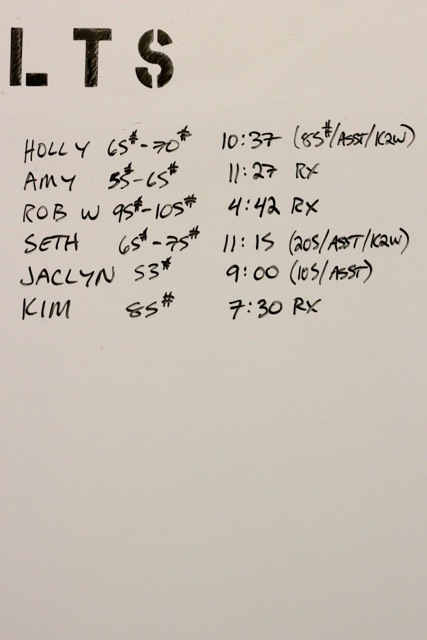 LTS
HOLLY 65#-70# 10:37 (85#/ASST/K2W)
AMY 55-65# 11:27 RX
ROB W 95#-105# 4:42 RX
SETH 65#-75# 11:15 (205/ASST/K2W)
JACLYN 53# 9:00 (105/ASST)
KIM 85# 7:30 RX